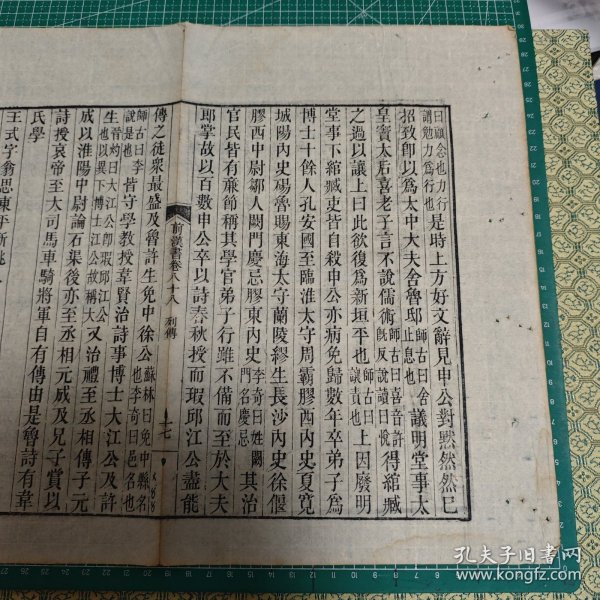 曰顧念也力行
謂勉力爲行也
是時上方好文辭見申公對默然然已
招致卽以爲太中大夫舍魯邸
師古曰舍
止息也
議明堂事太
皇竇太后喜老子言不說儒術
師古曰喜音許
旣反說讀曰悅
得綰臧
之過以讓上曰此欲復爲新垣平也
師古曰
讓責也
上因廢明
堂事下綰臧吏皆自殺申公亦病免歸數年卒弟子爲
博士十餘人孔安國至臨淮太守周霸膠西內史夏寬
城陽內史碭魯賜東海太守蘭陵繆生長沙內史徐偃
膠西中尉鄒人闕門慶忌膠東內史
李奇曰姓闕
門名慶忌
其治
官民皆有廉節稱其學官弟子行雖不備而至於大夫
郎掌故以百數申公卒以詩春秋授而瑕邱江公盡能
前漢書卷八十八
列傳
十七
傳之徒衆最盛及魯許生免中徐公
蘇林曰免中縣名
也李奇曰邑名也
師古曰李
說是也
皆守學教授韋賢治詩事博士大江公及許
生
晉灼曰大江公卽瑕邱江公
也以異下博士江公故稱大
又治禮至丞相傳子元
成以淮陽中尉論石渠後亦至丞相元成及兄子賞以
詩授哀帝至大司馬車騎將軍自有傳由是魯詩有韋
氏學
王式字翁思東平新桃人
孔夫子旧书网
www.kongfz.com